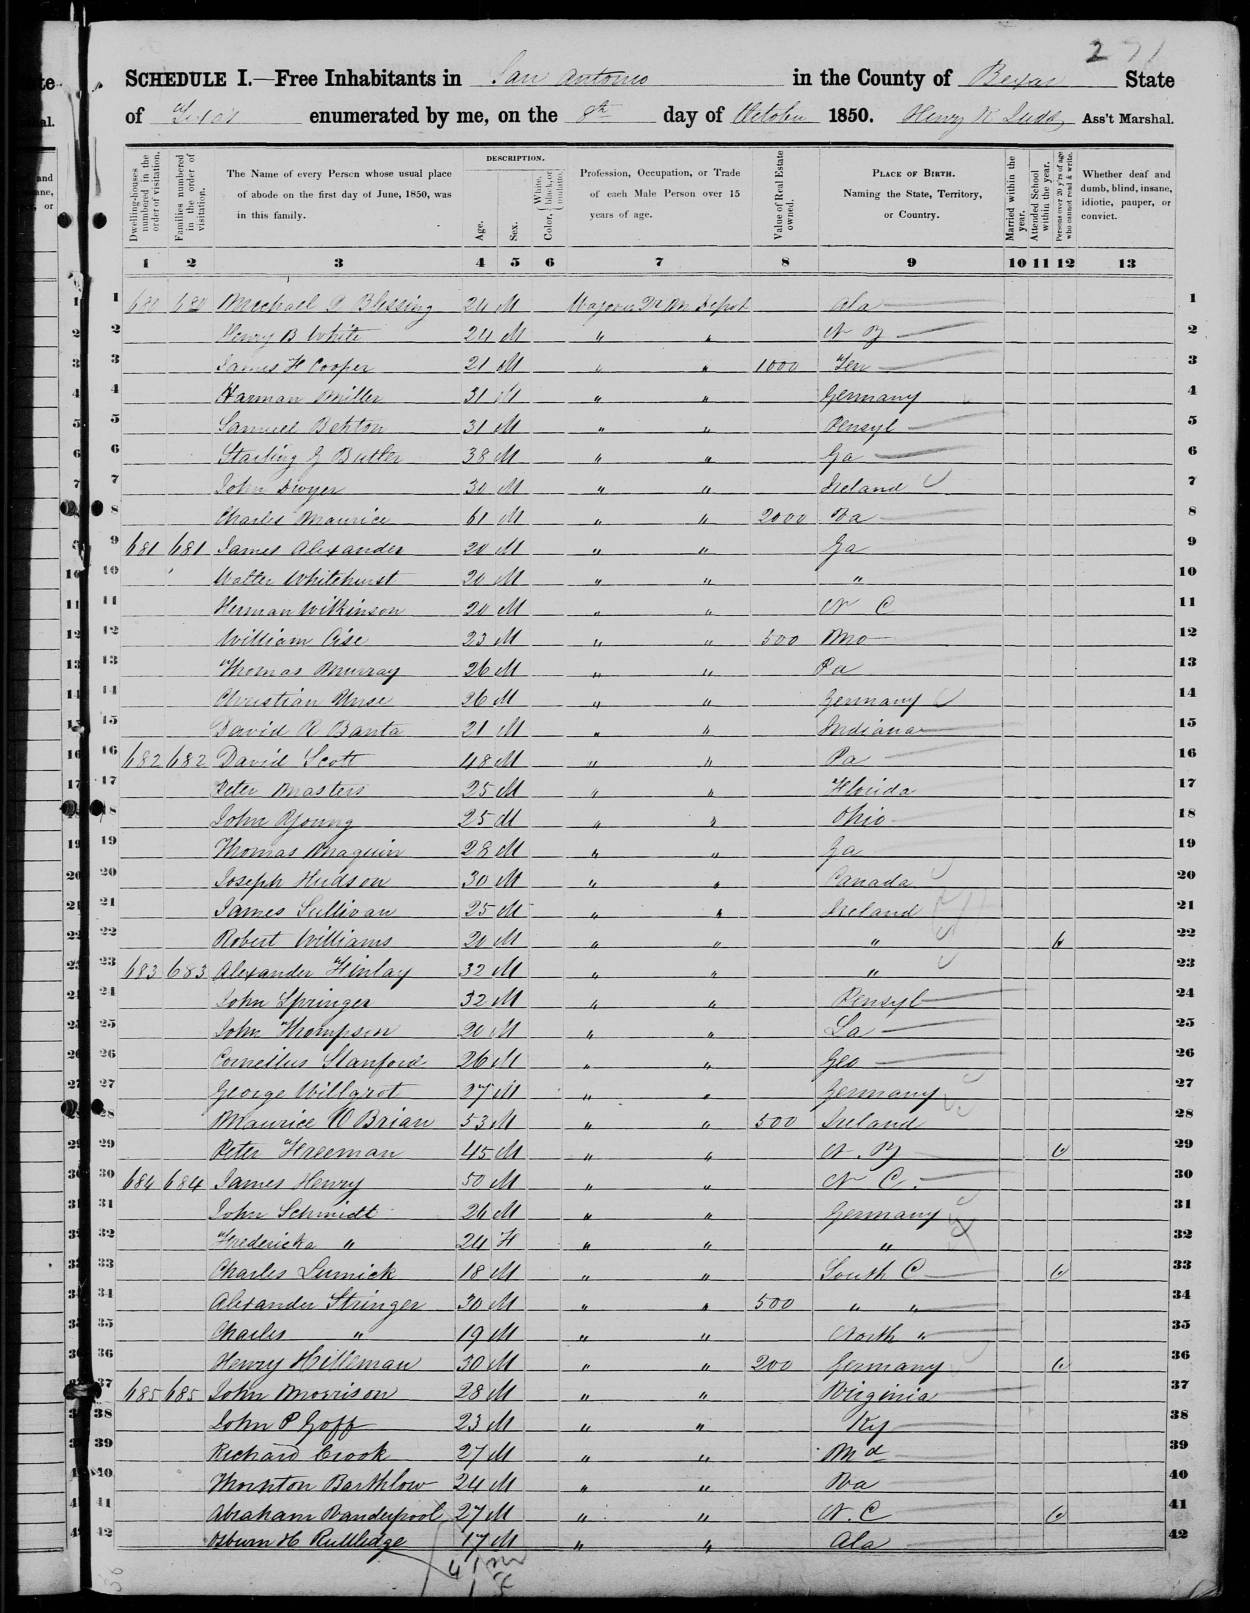 271
SCHEDULE I.—Free Inhabitants in San Antonio in the County of Bexar State
of Texas enumerated by me, on the 8th day of October 1850. Henry K Judd Ass't Marshal.
Dwelling-houses numbered in the order of visitation.
Families numbered in the order of visitation.
The Name of every Person whose usual place of abode on the first day of June, 1850, was in this family.
DESCRIPTION.
Age.
Sex.
Color, White, black, or mulatto.
Profession, Occupation, or Trade of each Male Person over 15 years of age.
Value of Real Estate owned.
PLACE OF BIRTH. Naming the State, Territory, or Country.
Married within the year.
Attended School within the year.
Persons over 20 y'rs of age who cannot read & write.
Whether deaf and dumb, blind, insane, idiotic, pauper, or convict.
1 2 3 4 5 6 7 8 9 10 11 12 13
1 680 680 Michael Blessing 24 M Depot Ala 1
2 Henry B White 24 M " " N Y 2
3 James H Cooper 21 M " " 1000 Ten 3
4 Harman Miller 31 M " " Germany 4
5 Samuel 31 M " " Pensyl 5
6 Starling G Butler 38 M " " Ga 6
7 John Dwyer 30 M " " Ireland 7
8 Charles Maurice 61 M " " 2000 Va 8
9 681 681 James Alexander 20 M " " Ga 9
10 Walter Whitehurst 20 M " " " 10
11 Herman Wilkinson 20 M " " N C 11
12 William 23 M " " 500 Mo 12
13 Thomas Murray 26 M " " Pa 13
14 Christian 26 M " " Germany 14
15 David R Banta 21 M " " Indiana 15
16 682 682 David Scott 48 M " " Pa 16
17 Peter Masters 25 M " " Florida 17
18 John Young 25 M " " Ohio 18
19 Thomas Maguin 28 M " " Ga 19
20 Joseph Hudson 30 M " " Canada 20
21 James Sullivan 25 M " " Ireland 21
22 Robert Williams 20 M " " " 22
23 683 683 Alexander Finlay 32 M " " " 23
24 John Springer 32 M " " Pensyl 24
25 John Thompson 20 M " " La 25
26 Cornelius Stanford 26 M " " Geo 26
27 George Willgrot 27 M " " Germany 27
28 Maurice O Brian 53 M " " 500 Ireland 28
29 Peter Freeman 45 M " " N. Y 29
30 684 684 James Henry 50 M " " N C. 30
31 John Schmidt 26 M " " Germany 31
32 Fredericka " 24 F " " " 32
33 Charles 18 M " " South C 33
34 Alexander Stringer 30 M " " 500 " " 34
35 Charles " 19 M " " North " 35
36 Henry Hilleman 30 M " " 200 Germany 36
37 685 685 John Morrison 28 M " " Virginia 37
38 John P Goff 23 M " " Ky 38
39 Richard Crook 27 M " " Md 39
40 Thornton Barthlow 24 M " " Va 40
41 Abraham Vanderpool 27 M " " N. C 41
42 Osburn H Rutledge 17 M " " Ala 42
41 m
1 f